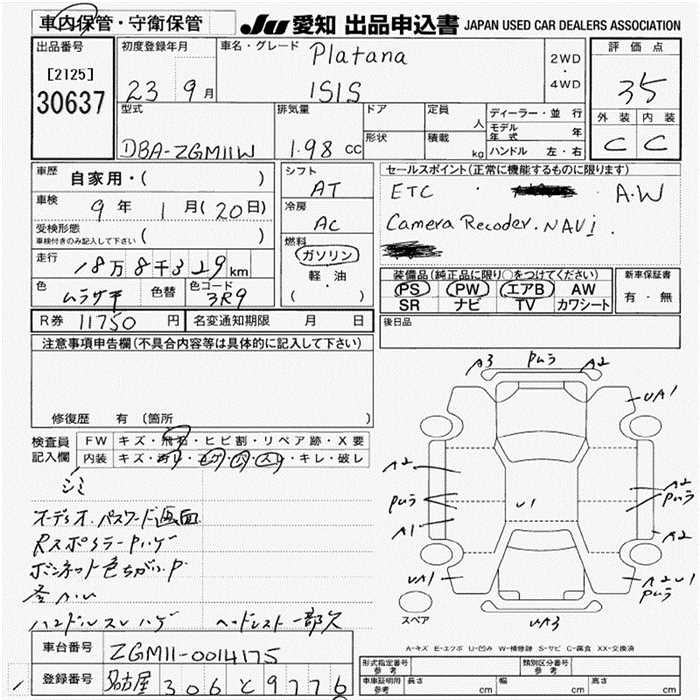 車内保管・守衛保管
JU 愛知 出品申込書 JAPAN USED CAR DEALERS ASSOCIATION
出品番号
[2125]
30637
初度登録年月
23 9月
車名・グレード
Platana
ISIS
2WD
・
4WD
評価点
35
外装 内装
C C
型式
DBA-ZGM11W
排気量
1.98 CC
ドア
形状
定員
人
積載
kg
ディーラー・並行
モデル年式 年
ハンドル 左・右
車歴
自家用・( )
車検
9年 1月(20日)
受検形態
車検付きのみ記入して下さい ( )
走行
18万8千329km
色
ムラサキ
色替
色コード
3R9
シフト
AT
冷房
AC
燃料
ガソリン
軽・油
( )
セールスポイント(正常に機能するものに限ります)
ETC ・ A・W
Camera Recoder. NAVi.
装備品(純正品に限り○をつけてください)
PS PW エアB AW
SR ナビ TV カワシート
新車保証書
有・無
R券 11750 円
名変通知期限 月 日
後日品
注意事項申告欄(不具合内容等は具体的に記入して下さい)
修復歴 有 (箇所
検査員
記入欄
FW キズ・飛石・ヒビ割・リペア跡・X要
内装 キズ・・コゲ・・スレ・キレ・破レ
シミ
オーディオ.パスワード画面
Rスポイラーハゲ
ボンネット色ちがい.P
ハンドルスレハゲ ヘッドレスト一部欠
A3 Pムラ A2
UA1
A2
Pムラ
A1
UA1
U1
A2
Pムラ
A2
A2U1
Pムラ
UA3
スペア
A-キズ E-エクボ U-凹み W-補修跡 S-サビ C-腐食 XX-交換済
車台番号
ZGM11-0014175
登録番号
名古屋 306 と 9776
形式指定番号
参考
類別区分番号
参考
車車証明用
参考
長さ cm
幅 cm
高さ cm